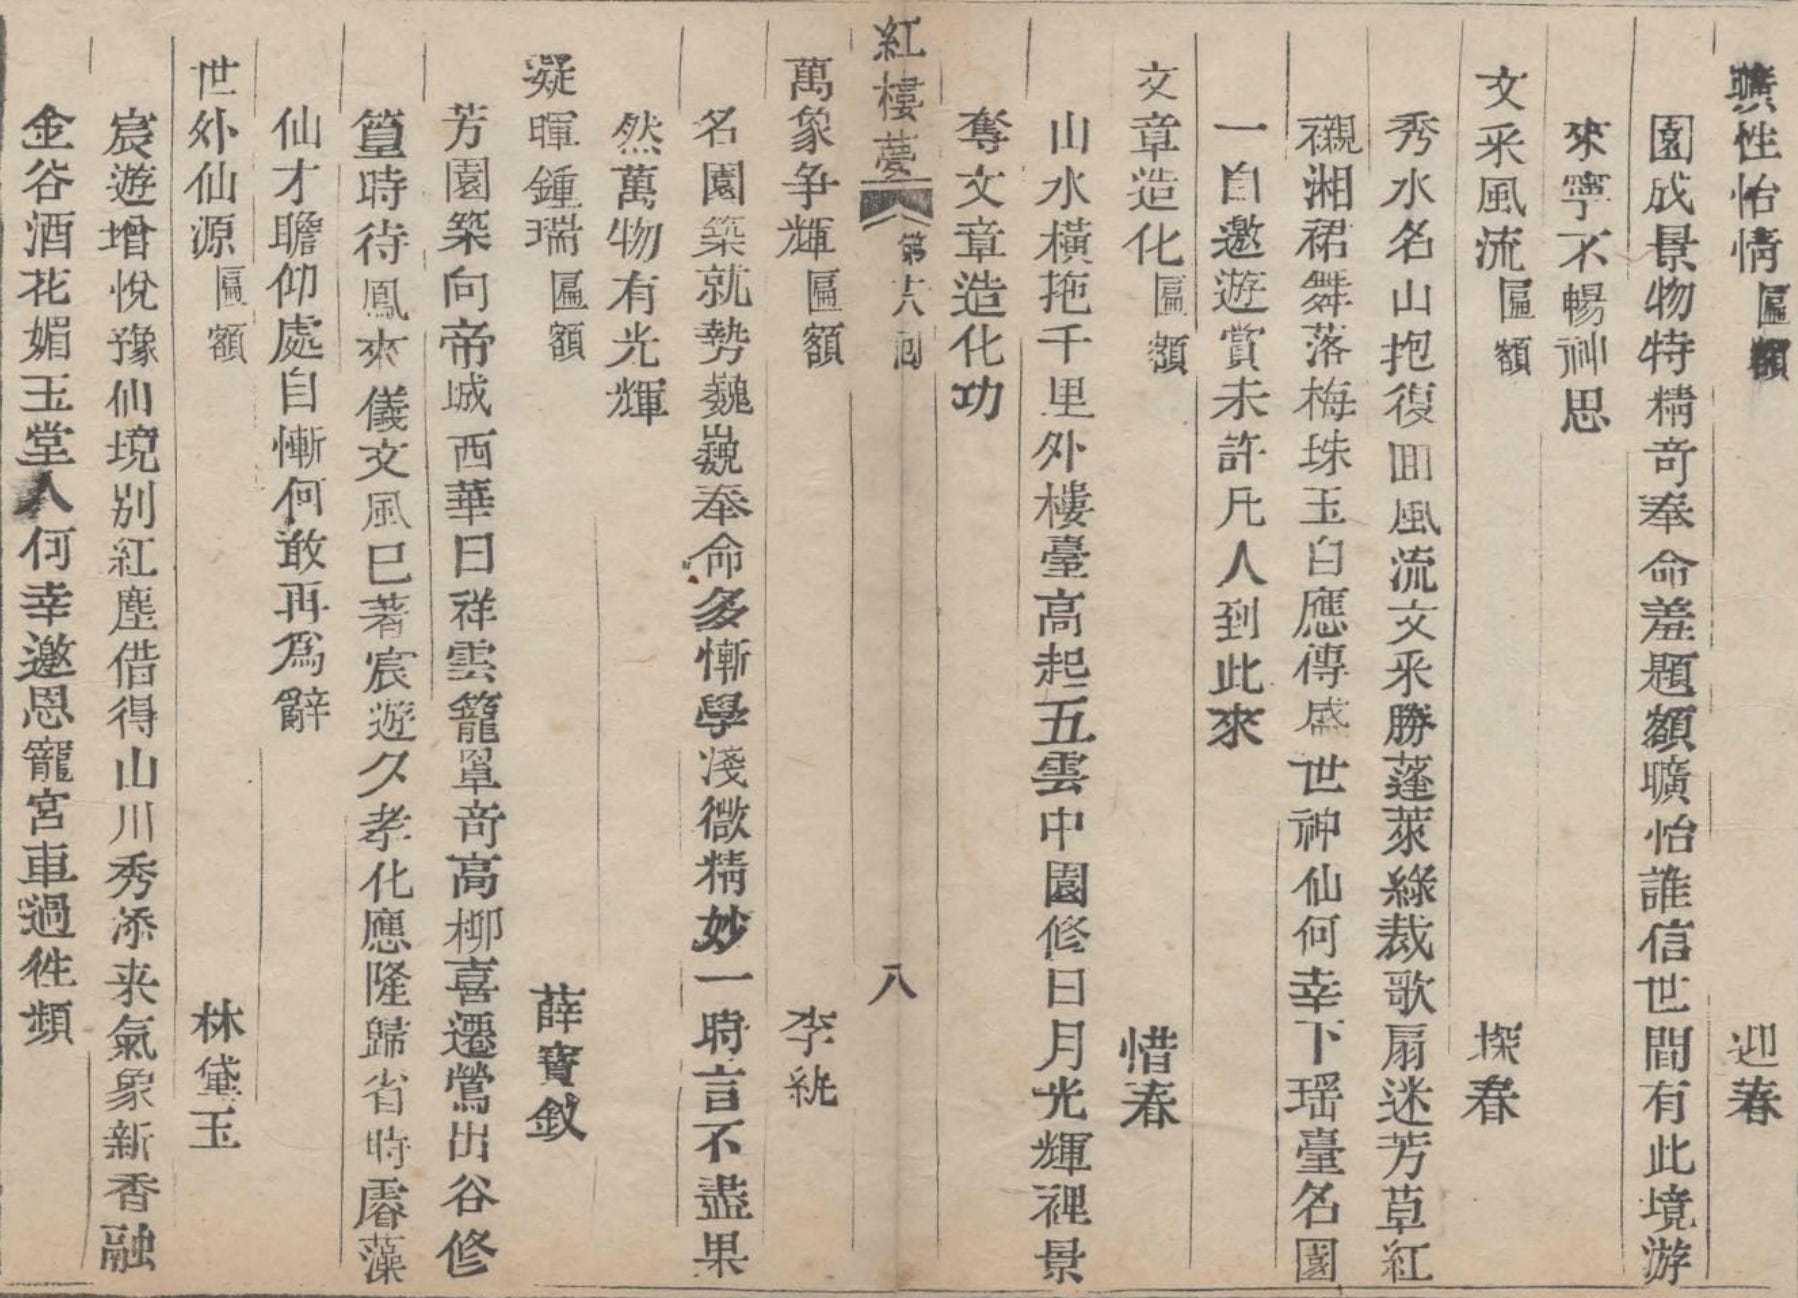 曠性怡情匾額 迎春
園成景物特精奇奉命羞題額曠怡誰信世間有此境游
來寧不暢神思
文采風流匾額 探春
秀水名山抱復囬風流文采勝蓬萊綠裁歌扇迷芳草紅
襯湘裙舞落梅珠玉自應傳盛世神仙何幸下瑶臺名園
一自邀遊賞未許凡人到此來
文章造化匾額 惜春
山水橫拖千里外樓臺高起五雲中園修日月光輝裡景
奪文章造化功
紅樓夢 第十八囘 八
萬象争輝匾額 李紈
名園築就勢巍巍奉命多慚學淺微精妙一時言不盡果
然萬物有光輝
凝暉鍾瑞匾額 薛寶釵
芳園築向帝城西華日祥雲籠罩奇高柳喜遷鶯出谷修
篁時待鳳來儀文風已著宸遊夕孝化應隆歸省時睿藻
仙才瞻仰處自慚何敢再爲辭
世外仙源匾額 林黛玉
宸遊增悅豫仙境别紅塵借得山川秀添来氣象新香融
金谷酒花媚玉堂人何幸邀恩寵宮車過徃頻